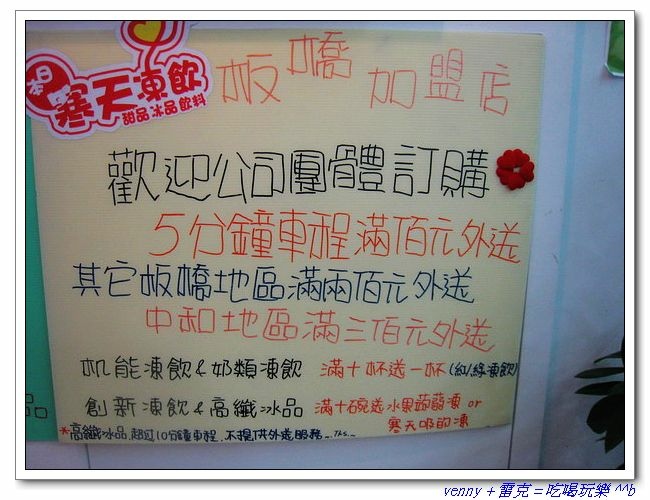 日本
寒天凍飲
甜品冰品飲料
板橋 加盟店
歡迎公司團體訂購
5分鐘車程滿佰元外送
其它板橋地區滿兩佰元外送
中和地區滿三佰元外送
机能凍飲&奶類凍飲 滿十杯送一杯(紅/綠凍飲)
創新凍飲&高纖冰品 滿十碗送水果蒟蒻凍 or
寒天吸的凍
*高纖冰品.超过10分鐘車程.不提供外送服務~Tks~
品
venny + 雷克 = 吃喝玩樂 ^^b